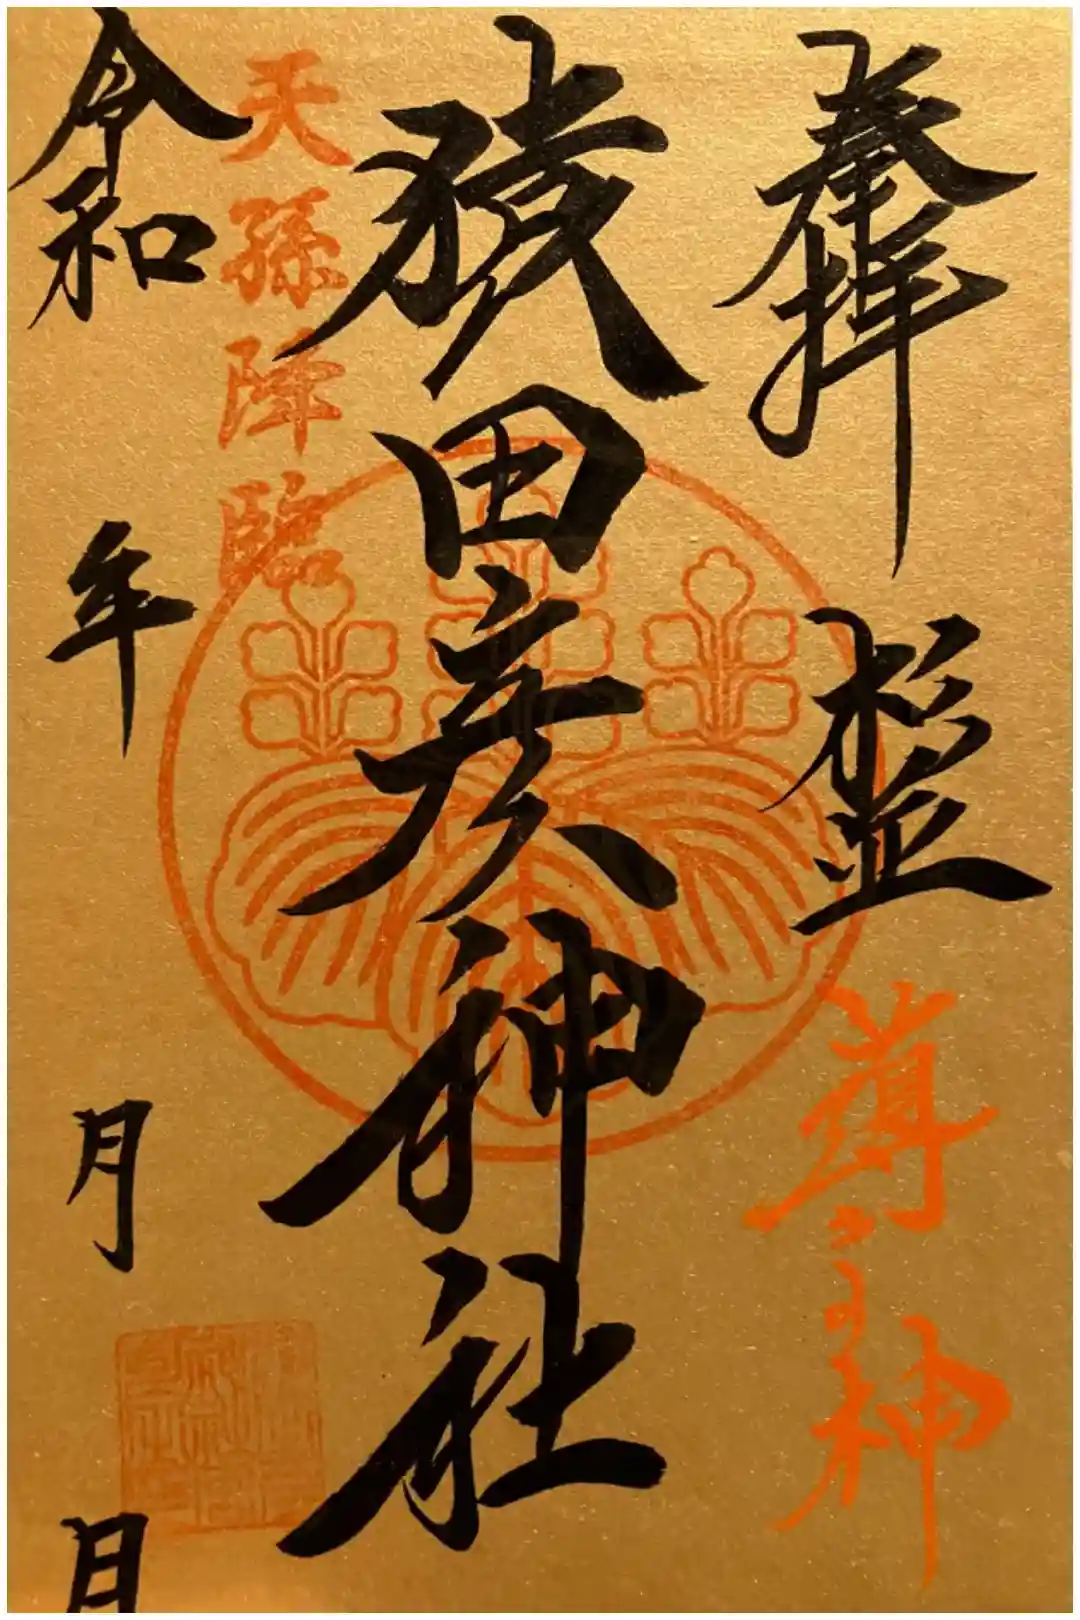 奉拝
盤
導之神
猿田彦神社
天孫降臨
令和 年 月 日